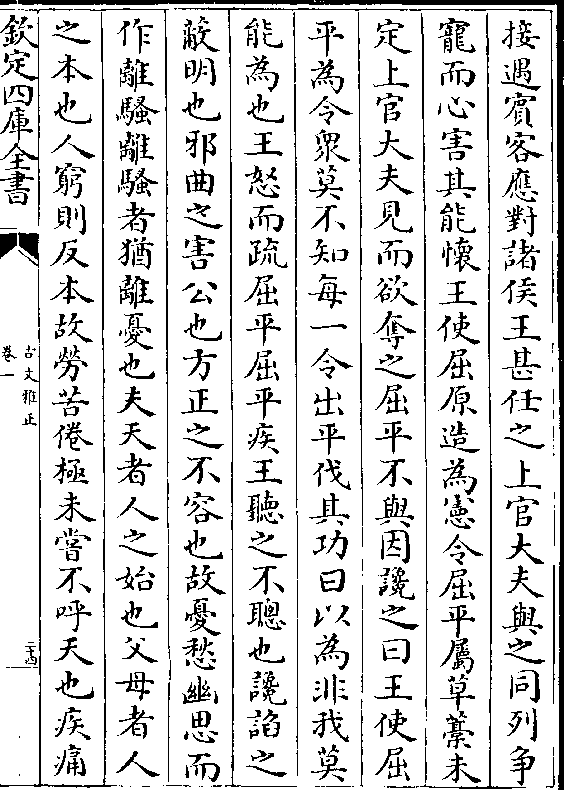 接遇賓客應對諸侯王甚任之上官大夫與之同列爭
寵而心害其能懷王使屈原造為憲令屈平屬草藁未
定上官大夫見而欲奪之屈平不與因讒之曰王使屈
平為令衆莫不知每一令出平伐其功曰以為非我莫
能為也王怒而疏屈平屈平疾王聽之不聰也讒諂之
蔽明也邪曲之害公也方正之不容也故憂愁幽思而
作離騷離騷者猶離憂也夫天者人之始也父母者人
之本也人窮則反本故勞苦倦極未嘗不呼天也疾痛
欽定四庫全書
古文雅正
卷一
二十四